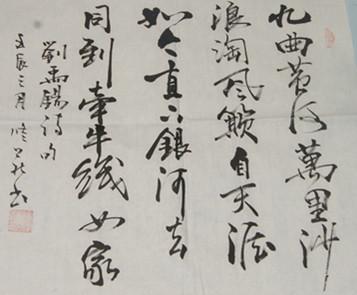 九曲黄河萬里沙
浪淘风簸自天涯
如今直上銀河去
同到牽牛织女家
劉禹錫詩句
壬辰三月 书